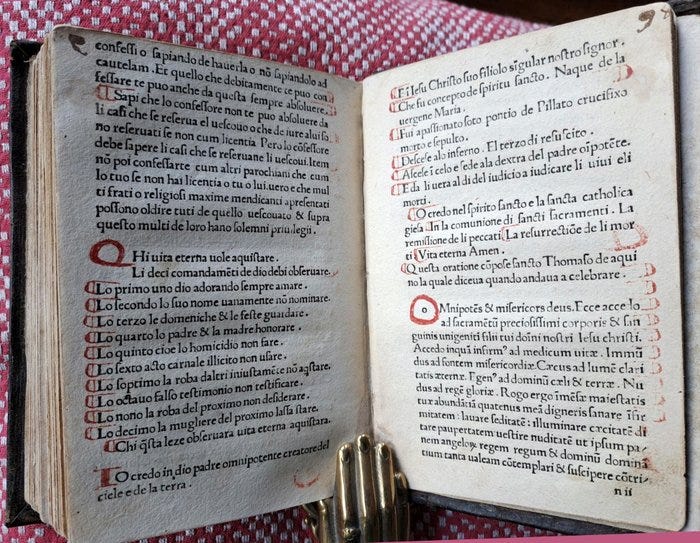 confessi o sapiando de hauerla o nō sapiandolo ad
cautelam. Et quello che debitamente te puo con
fessare te puo anche da questa sempre absoluere.
Sapi che lo confessore non te puo absoluere da
li casi che se reserua el uescouo o che de iure alui so
no reseruati se non cum licentia. Pero lo cōfessore
debe sapere li casi che se reseruane li uescoui. Item
nō poi confessarte cum altri parochiani che cum
lo tuo se non hai licentia o tu o lui. uero e che mul
ti frati o religiosi maxime mendicanti apresentati
possono oldire tuti de quello uescouato & supra
questo multi de loro hano solemni priuilegii.
Q Hi uita eterna uole aquistare.
Li deci comandamēti de dio debi obseruare.
Lo primo uno dio adorando sempre amare.
Lo secondo lo suo nome uanamente nō nominare.
Lo terzo le domeniche & le feste guardare.
Lo quarto lo padre & la madre honorare.
Lo quinto cioe lo homicidio non fare.
Lo sexto acto carnale illicito non usare.
Lo septimo la roba daltri iniustamēte nō aqstare.
Lo octauo falso testimonio non testificare.
Lo nono la roba del proximo non desiderare.
Lo decimo la mugliere del proximo lassa stare.
Chi q̄sta leze obseruara uita eterna aquistara.
IO credo in dio padre omnipotente creatore del
ciele e de la terra.
9
E i Iesu Christo suo filiolo sīgular nostro signor.
Che fu concepto de spiritu sancto. Naque de la
uergene Maria.
Fui apassionato soto pontio de Pillato crucifixo
morto e sepulto.
Descese alo inferno. El terzo di resuscito.
Ascese ī celo e sede ala dextra del padre oīpotēte.
E da li uera al di del iudicio a iudicare li uiui eli
morti.
IO credo nel spirito sancto e la sancta catholica
giesa. In la comunione di sancti sacramenti. La
remissione de li peccati. La resurrectiōe de li mor
ti Vita eterna Amen.
Questa oratione cōpose sancto Thomaso de aqui
no la quale diceua quando andaua a celebrare.
O Mnipotēs & misericors deus. Ecce accedo
ad sacramētū preciosissimi corporis & san
guinis unigeniti filii tui domini nostri Iesu christi.
Accedo inquā infirm⁹ ad medicum uitæ. Immū
dus ad fontem misericordiæ. Cæcus ad lumē clari
tatis æternæ. Egen⁹ ad dominū cæli & terræ. Nu
dus ad regē gloriæ. Rogo ergo īmēsæ maiestatis
tuæ abundātiā quatenus meā digneris sanare īfir
mitatem: lauare feditatē: illuminare cæcitatē di
tare paupertatem uestire nuditatē ut ipsum pa
nem angeloꝝ regem regum & dominū dominā
tium tanta ualeam cōtemplari & suscipere cōtri
n ii